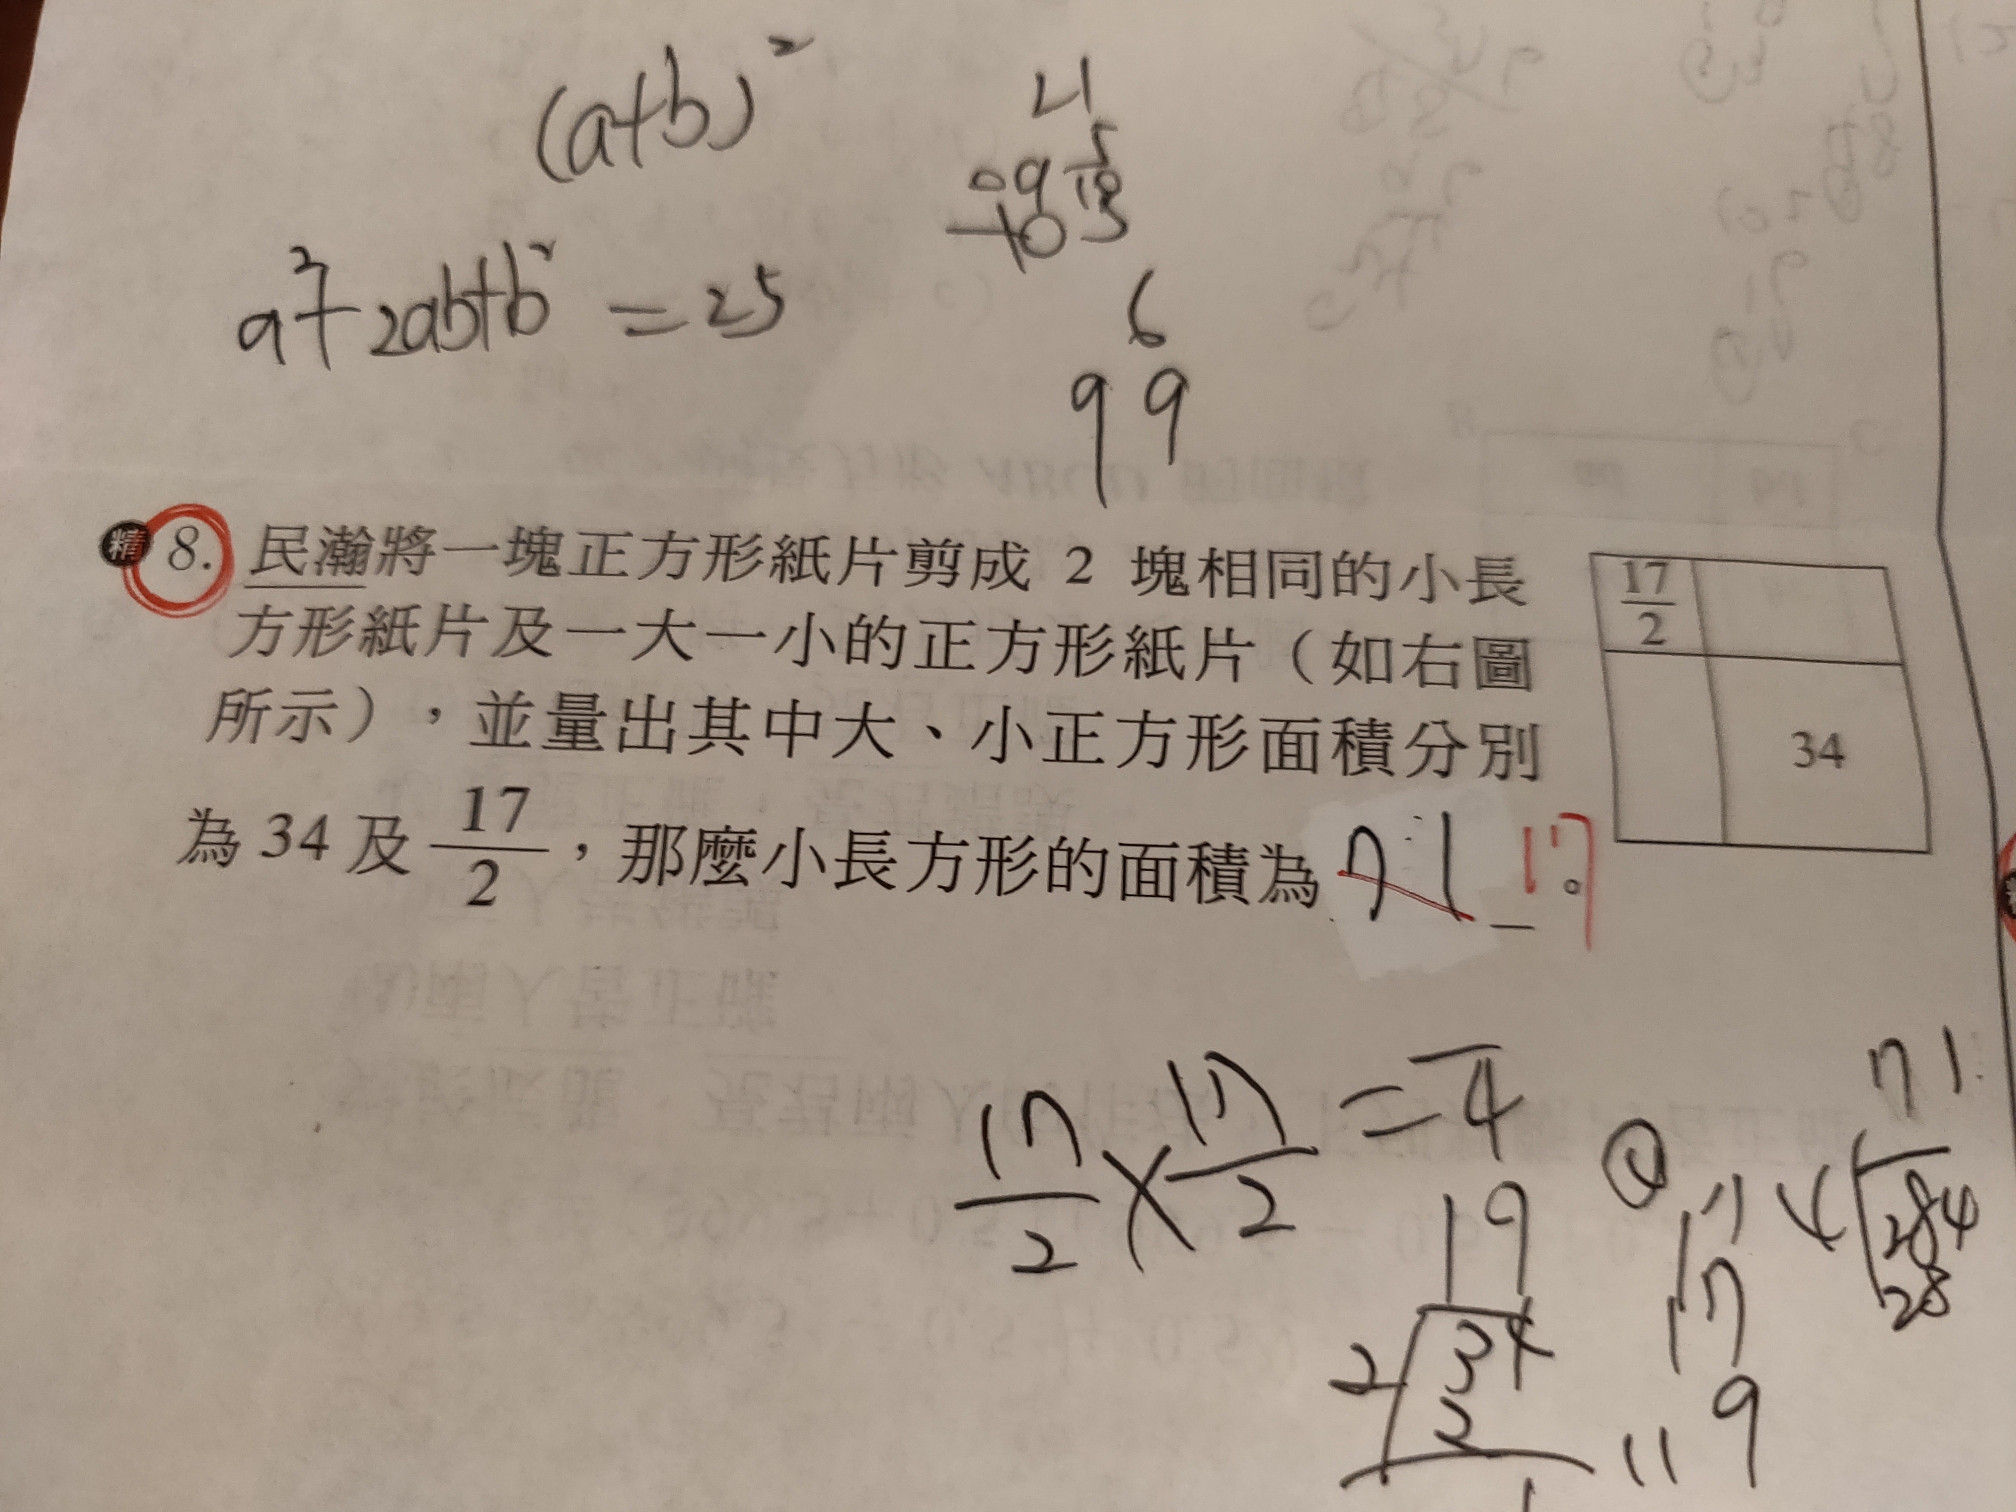 (a+b)²
a²+2ab+b² = 25
21
6
99
精 8. 民瀚將一塊正方形紙片剪成 2 塊相同的小長
方形紙片及一大一小的正方形紙片（如右圖
所示），並量出其中大、小正方形面積分別
為 34 及 17/2，那麼小長方形的面積為 71 17。
17/2
34
17/2 × 17/2 = 4
19
2 34
2
1
17
17
119
71
4 284
28